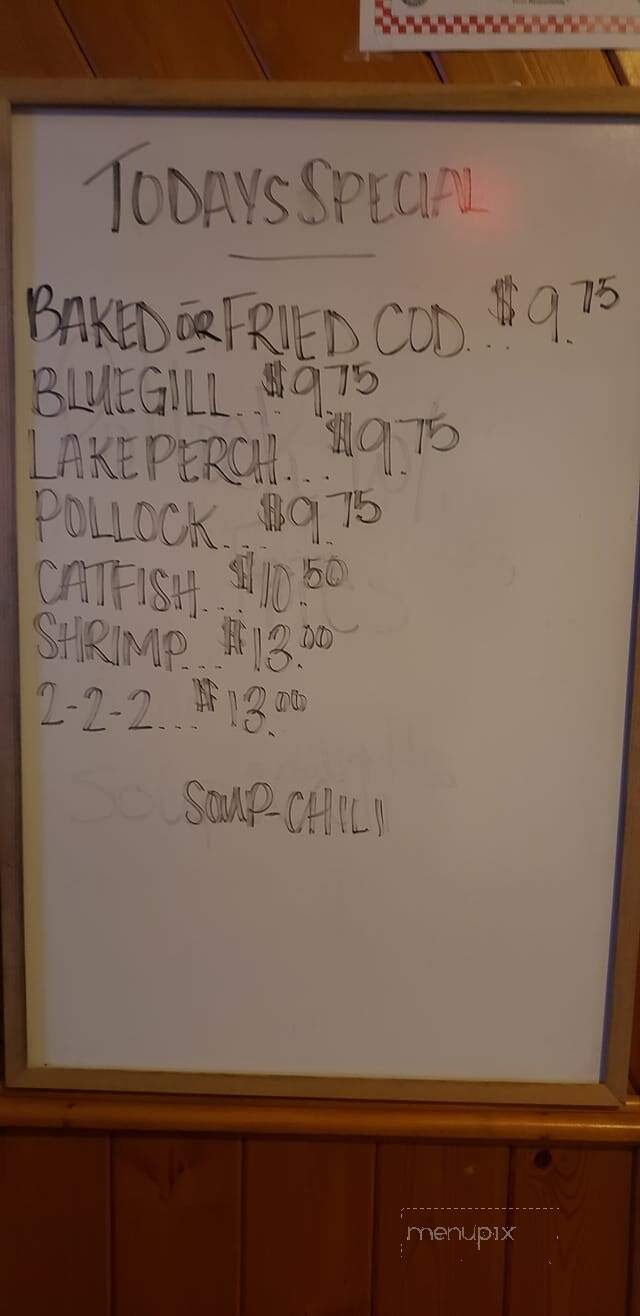 TODAYS SPECIAL
BAKED OR FRIED COD... $9.75
BLUEGILL... $9.75
LAKE PERCH... $9.75
POLLOCK... $9.75
CATFISH... $10.50
SHRIMP... $13.00
2-2-2... $13.00
SOUP-CHILI
menupix